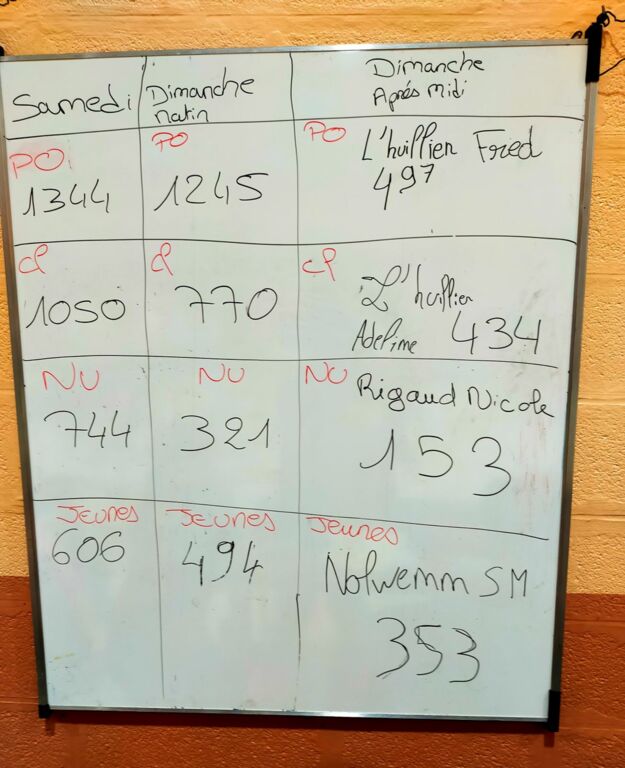 Samedi
Dimanche
Matin
Dimanche
Après Midi
PO
1344
PO
1245
PO L'huillier Fred
497
CP
1050
CP
770
CP L'huillier
Adeline 434
NU
744
NU
321
NU Rigaud Nicole
153
Jeunes
606
Jeunes
494
Jeunes
Nolwenn SM
353